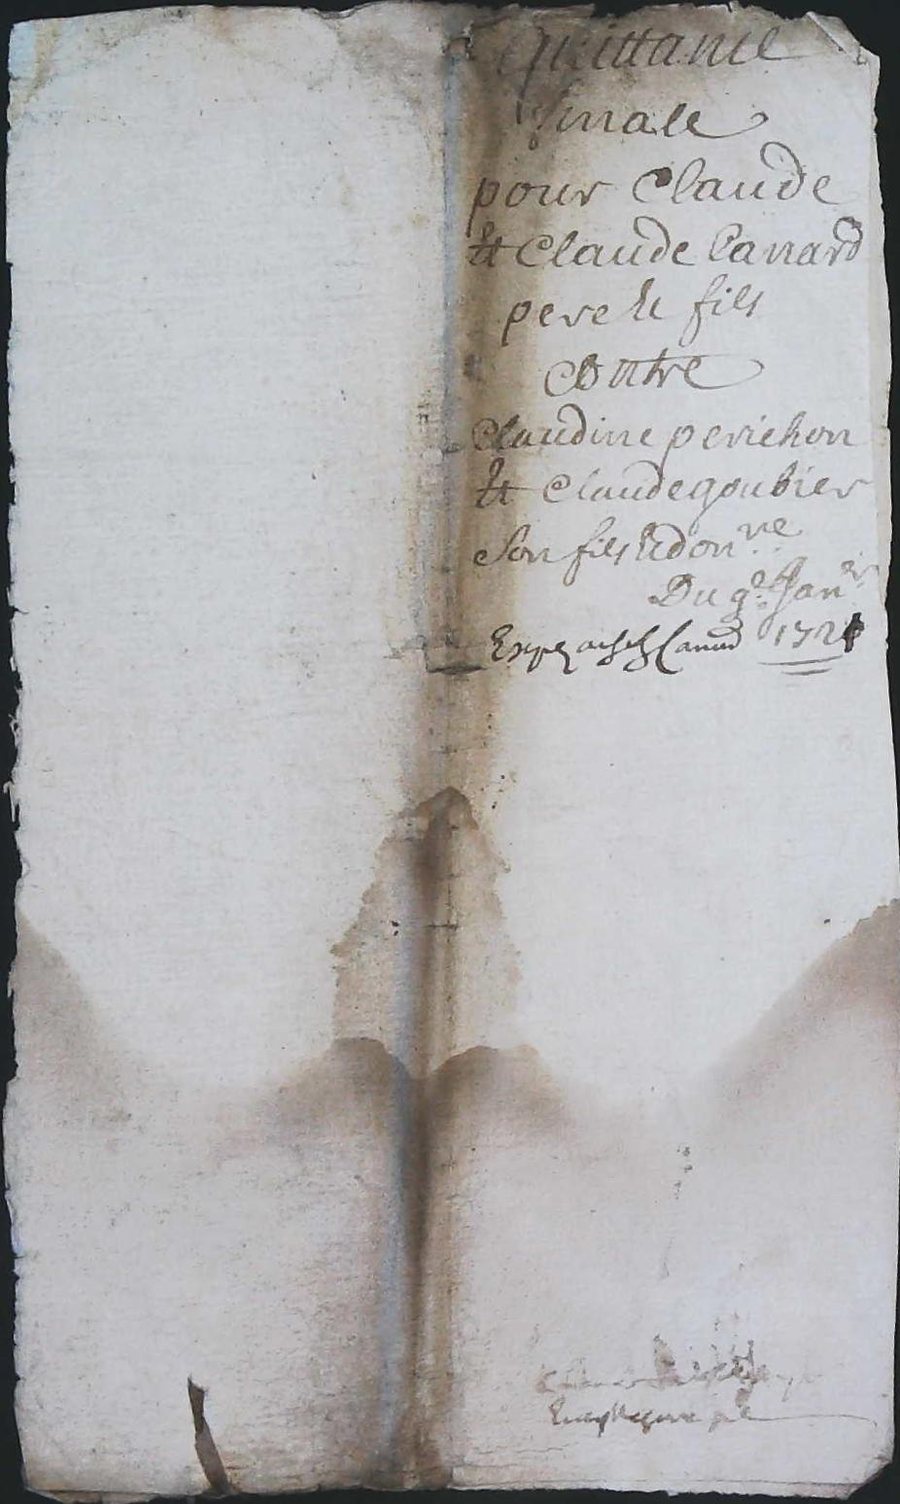 Quittance
finale
pour Claude
Et Claude Canard
pere Et fils
Contre
Claudine perichon
Et Claude goubier
Son fils Et don.re
Du 9e Janer
Canard 172